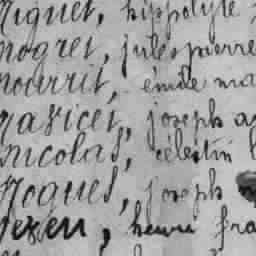 Miquel, hippolyte
mogret, jules pierre
nourrit, émile ma
navicet, joseph a
nicolas, célestin l
Noguès, joseph
Nexen, henri fra